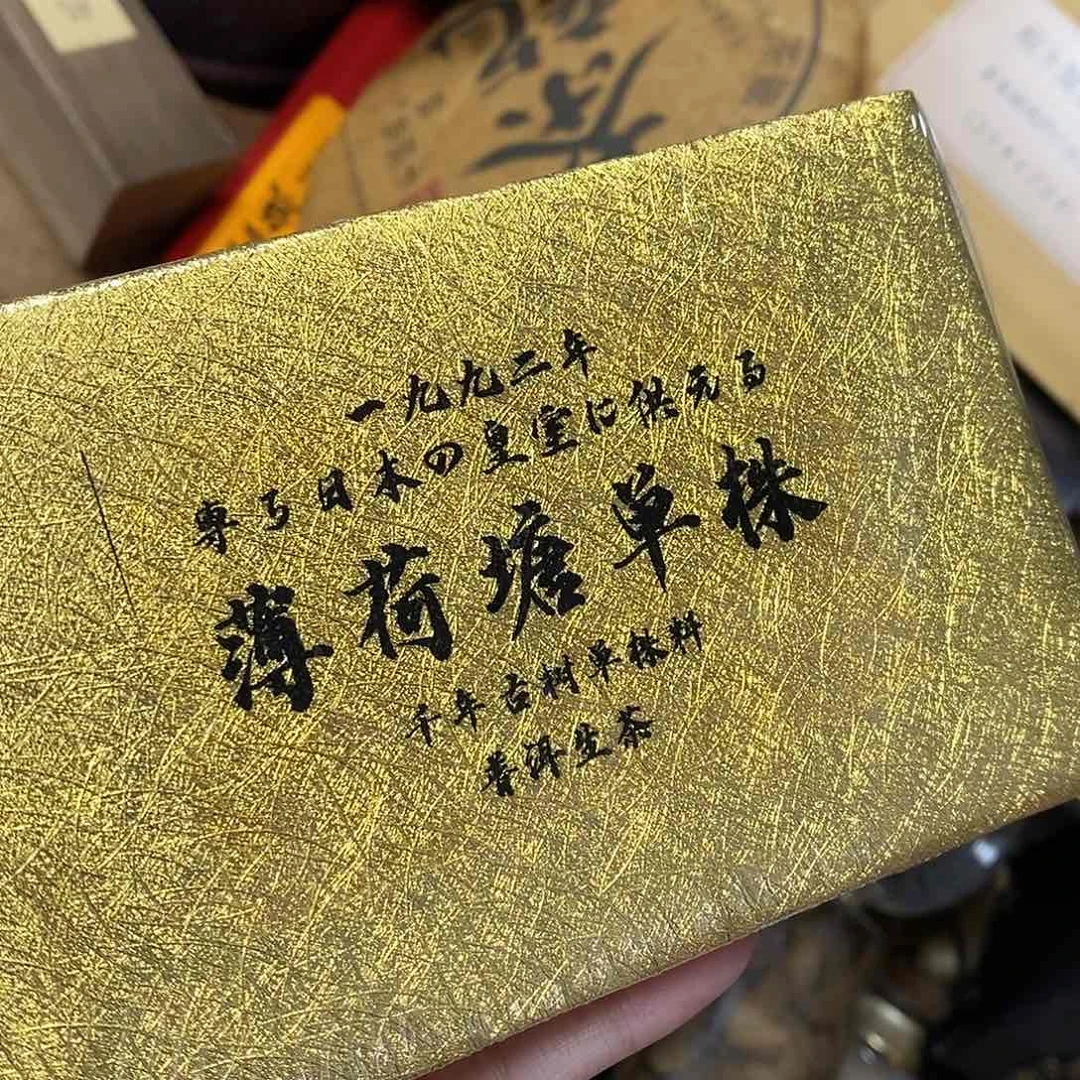 一九九二年
専ら日本の皇室に供える
薄荷塘单株
千年古树单株料
普洱生茶
茶